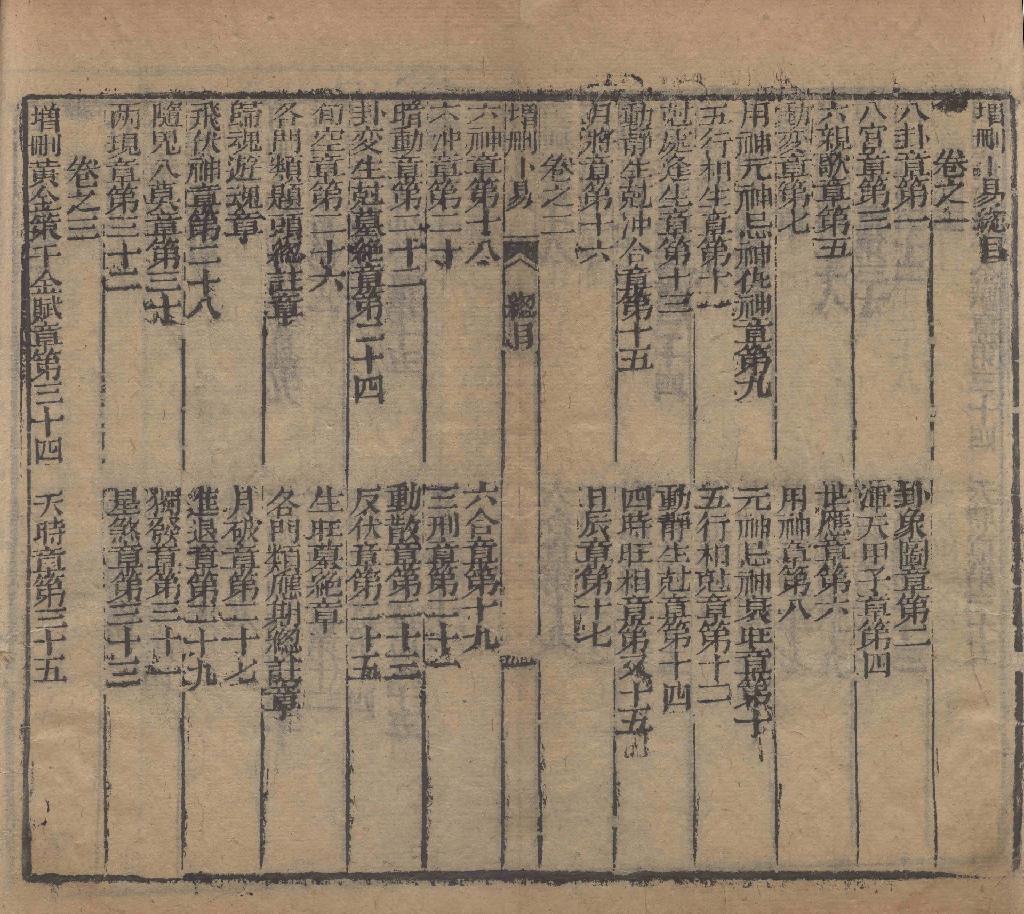 增刪卜易總目
卷之一
八卦章第一　卦象圖章第二
八宮章第三　渾天甲子章第四
六親歌章第五　世應章第六
動变章第七　用神章第八
用神元神忌神仇神章第九　元神忌神衰旺章第十
五行相生章第十一　五行相剋章第十二
尅處逢生章第十三　動靜生尅章第十四
動靜生尅冲合章第十五　四時旺相章第又十五
月將章第十六　日辰章第十七
卷之二
增刪卜易　總目
六神章第十八　六合章第十九
六冲章第二十　三刑章第二十一
暗動章第二十二　動散章第二十三
卦变生尅墓絶章第二十四　反伏章第二十五
旬空章第二十六　生旺墓絶章
各門類題頭總註章　各門類應期總註章
歸魂遊魂章　月破章第二十七
飛伏神章第二十八　進退章第二十九
隨鬼入墓章第三十　獨發章第三十一
兩現章第三十二　星煞章第三十三
卷之三
增刪黃金策千金賦章第三十四　天時章第三十五